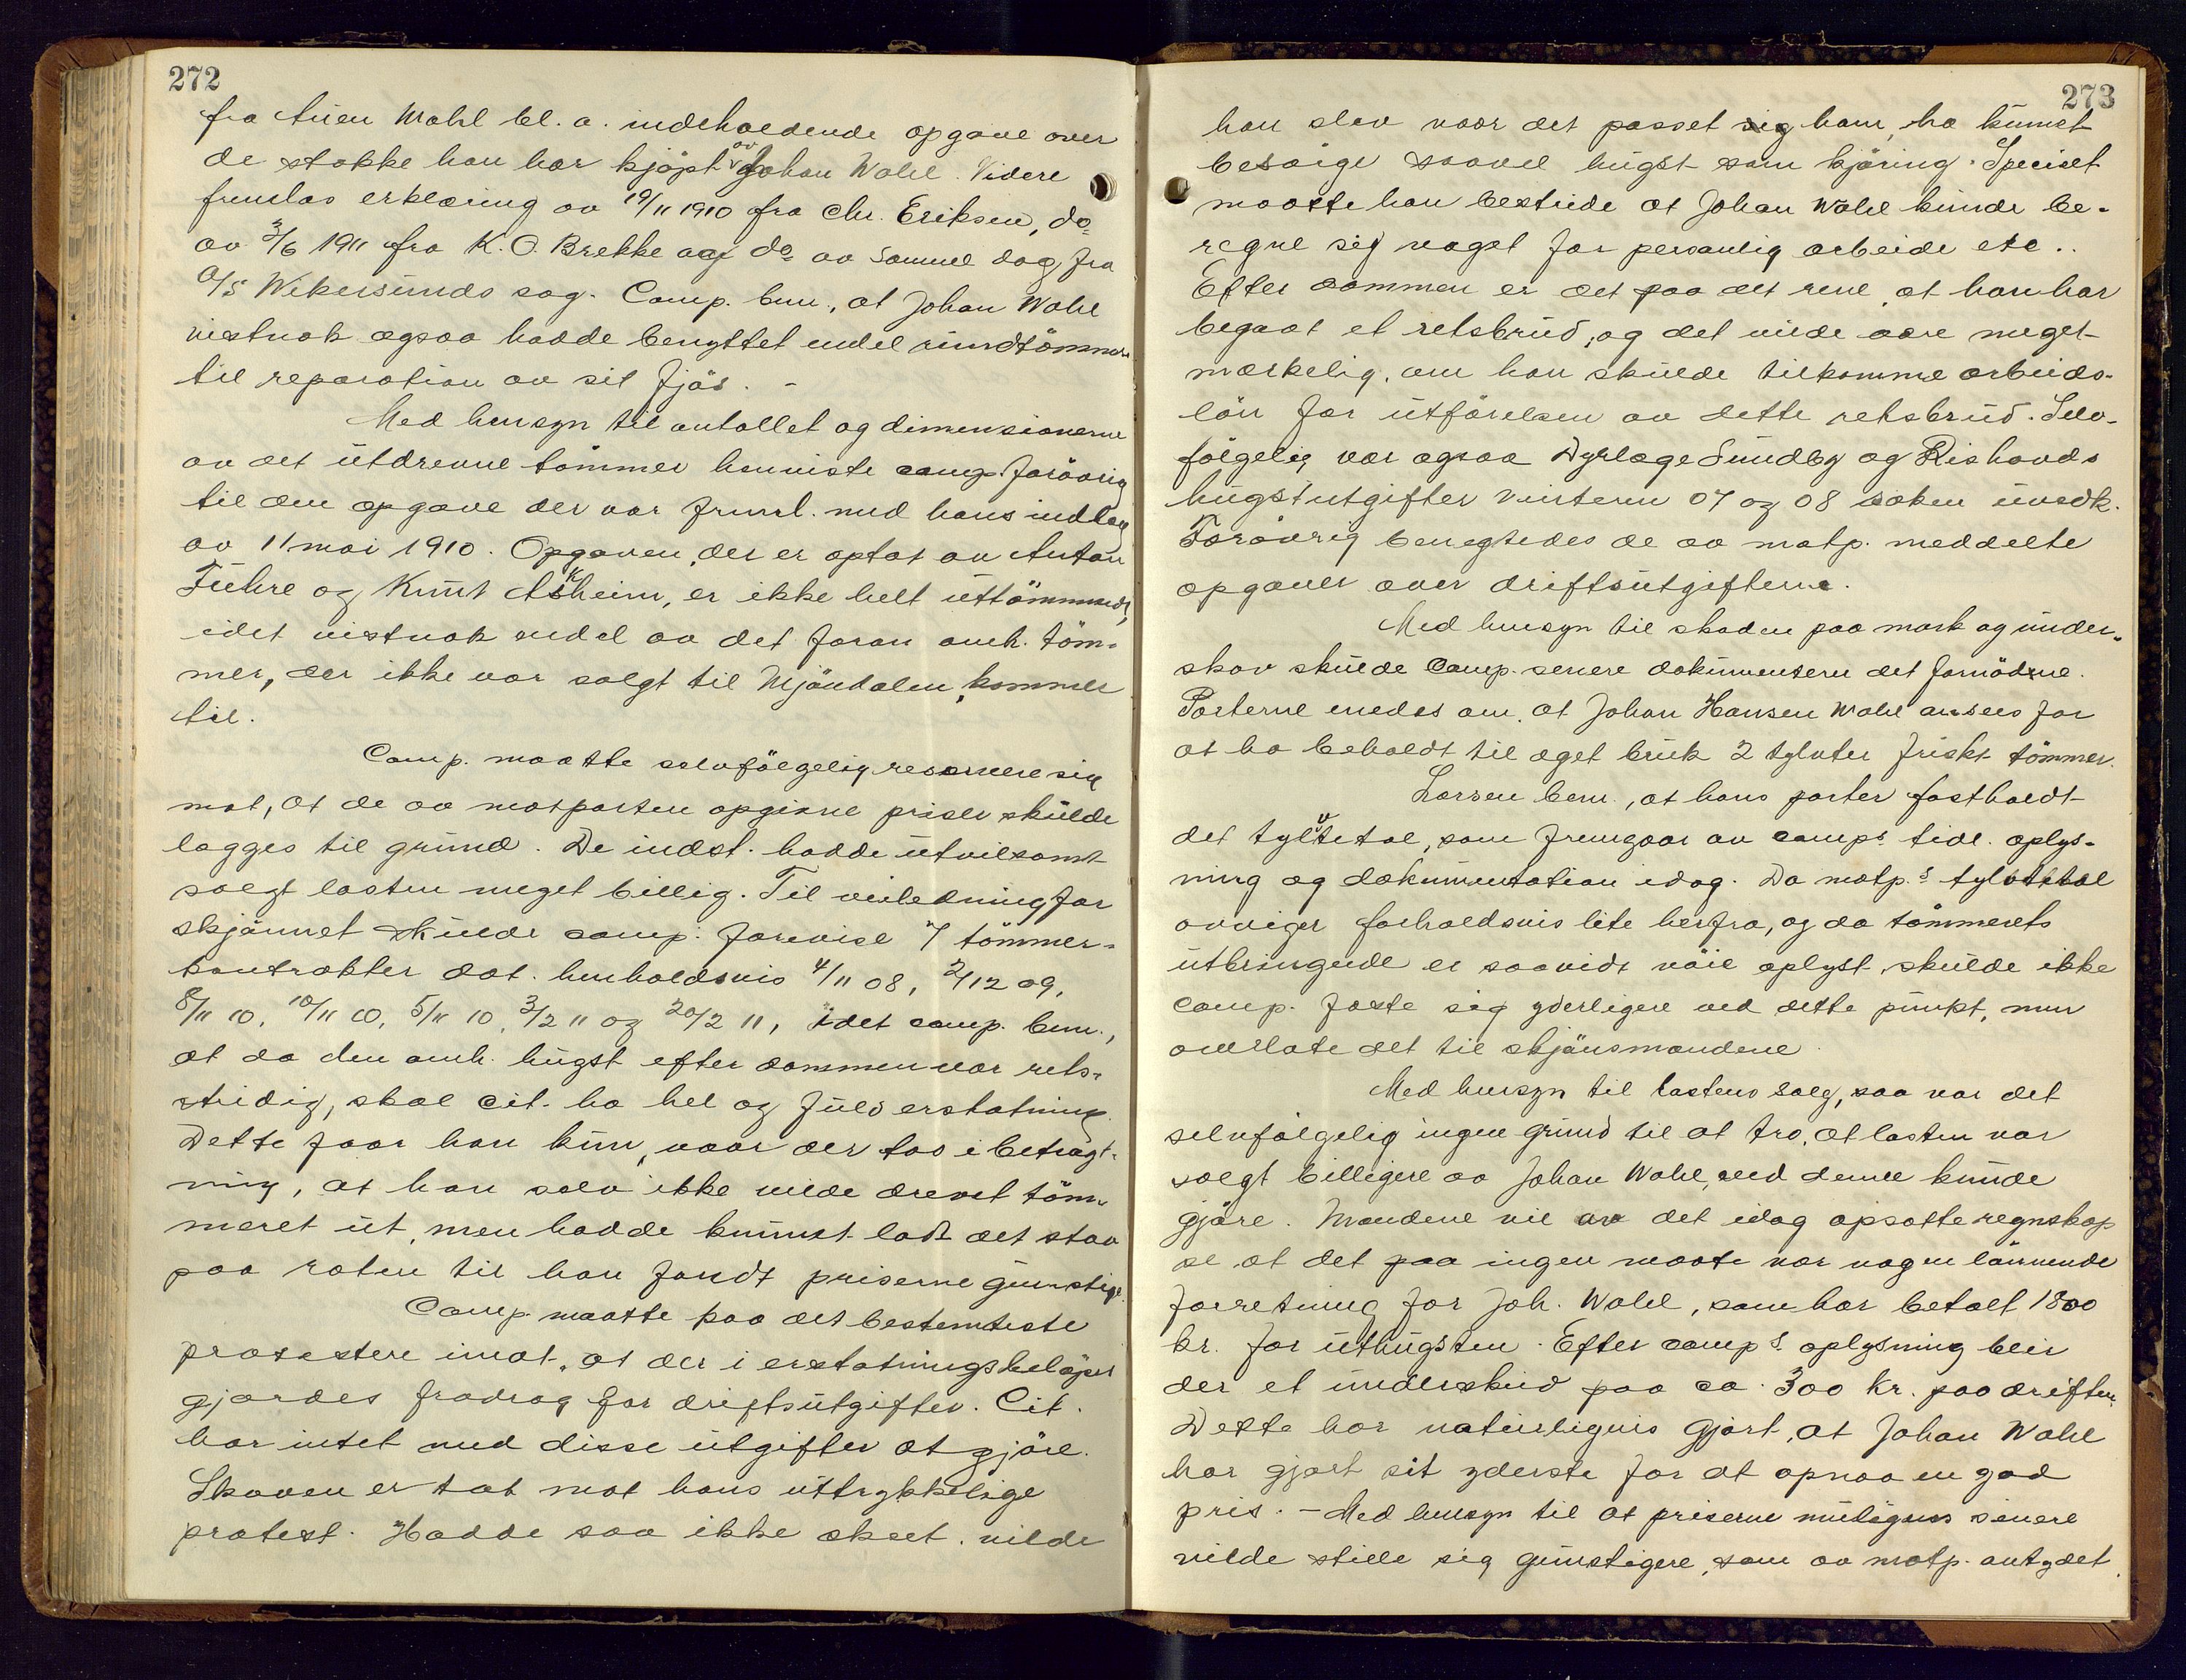 272
fra Auen Wahl bl. a. indeholdende opgave over
de stokke han har kjøpt av Johan Wahl. Videre
fremlas erklæring av 19/11 1910 fra Chr. Eriksen, do
av 3/6 1911 fra K. O. Brekke og do av samme dag fra
A/S Wikersunds sag. Comp. bem., at Johan Wahl
vistnok ogsaa hadde benyttet endel rundtömmer
til reparation av sit fjös. -
Med hensyn til antallet og dimensionerne
av det utdrevne tömmer henviste comp. forövrig
til den opgave der var freml. med hans indlæg
av 11 mai 1910. Opgaven, der er optat av Anton
Fuhre og Knut Askheim, er ikke helt uttömmende,
idet vistnok endel av det foran omh. töm-
mer, der ikke var solgt til Mjöndalen, kommer
til.
Comp. maatte selvfölgelig reservere sig
mot, at de av motparten opgivne priser skulde
lægges til grund. De indst. hadde utvilsomt
solgt lasten meget billig. Til veiledning for
skjönnet skulde comp. forevise 7 tömmer-
kontrakter dat. henholdsvis 4/11 08, 2/12 09,
8/11 10, 10/11 10, 5/11 10, 3/2 11 og 20/2 11, idet comp. bem.,
at da den omh. hugst efter dommen var rets-
stridig, skal cit. ha hel og fuld erstatning.
Dette faar han kun, naar der tas i betragt-
ning, at han selv ikke vilde drevet töm-
meret ut, men hadde kunnet latt det staa
paa roten til han fandt priserne gunstige.
Comp. maatte paa det bestemteste
protestere imot, at der i erstatningsbelöpet
gjordes fradrag for driftsutgifter. Cit.
har intet med disse utgifter at gjöre.
Skoven er tat mot hans uttrykkelige
protest. Hadde saa ikke skeet, vilde
273
han selv naar det passet sig ham, ha kunnet
besörge saavel hugst som kjöring. Specielt
maatte han bestride at Johan Wahl kunde be-
regne sig noget for personlig arbeide etc..
Efter dommen er det paa det rene, at han har
begaat et retsbrud, og det vilde være meget
merkelig, om han skulde tilkomme arbeids-
lön for utförelsen av dette retsbrud. Selv-
fölgelig var ogsaa Dyrlæge Sundby og Rishovds
hugstutgifter vinteren 07 og 08 saken uvedk.
Forövrig benegtedes de av motp. meddelte
opgaver over driftsutgifterne.
Med hensyn til skaden paa mark og under-
skov skulde Comp. senere dokumentere det fornödne.
Parterne enedes om, at Johan Hansen Wahl ansees for
at ha beholdt til eget bruk 2 tylvter friskt tömmer.
Larsen bem., at hans parter fastholdt
det tylvtetal, som fremgaar av comps tidl. oplys-
ning og dokumentation idag. Da motp.s tylvtetal
avviger forholdsvis lite herfra, og da tömmerets
utbringende er saavidt nöie oplyst, skulde ikke
comp. feste sig yderligere ved dette punkt, men
overlate det til skjönsmændene.
Med hensyn til lastens salg, saa var det
selvfölgelig ingen grund til at tro, at lasten var
solgt billigere av Johan Wahl, end denne kunde
gjöre. Mændene vil av det idag opsatte regnskap
se at det paa ingen maate var nogen lönnende
forretning for Joh. Wahl, som har betalt 1800
kr. for uthugsten. Efter comp.s oplysning blir
der et underskud paa ca. 300 kr. paa driften.
Dette har naturligvis gjort, at Johan Wahl
har gjort sit yderste for at opnaa en god
pris. - Med hensyn til at priserne muligens senere
vilde stille sig gunstigere, som av motp. antydet,